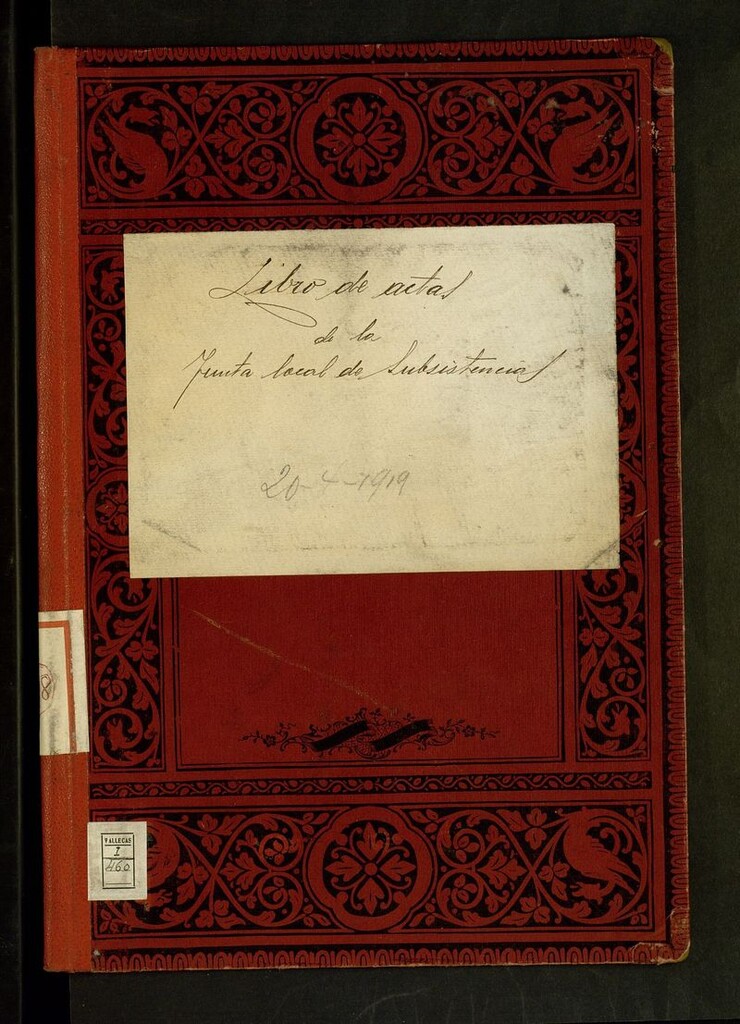 Libro de actas
de la
Junta local de Subsistencias
20-4-1919
8
VALLECAS
I
460